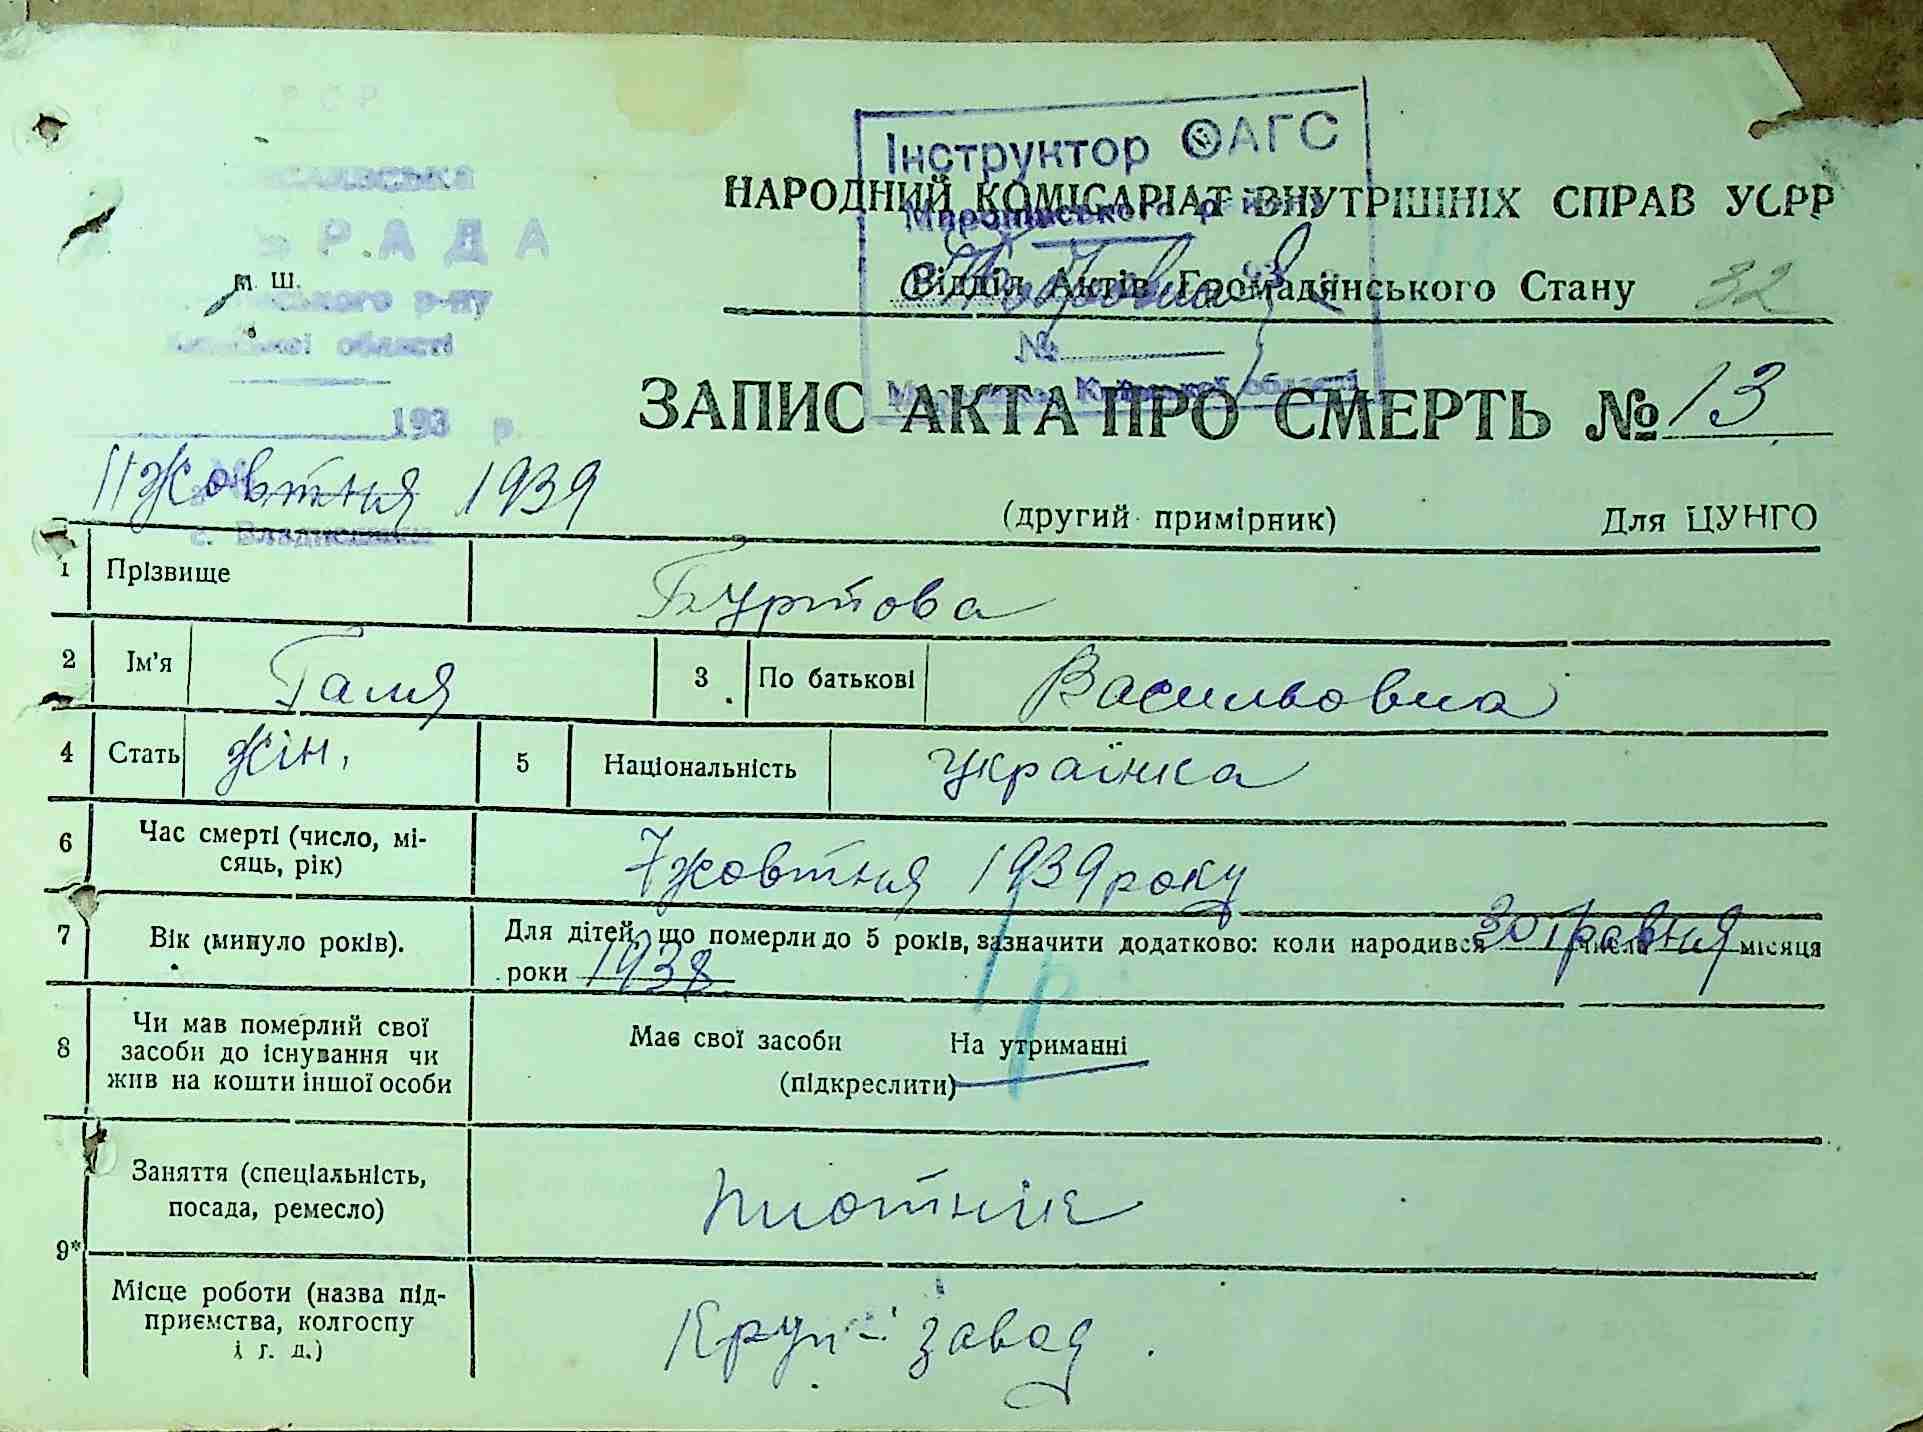 РСР
РАДА
м. Ш.
ського р-ну
області
193 р.
11 Жовтня 1939
Інструктор ОАГС
Миропільського району
№
Київської області
НАРОДНИЙ КОМІСАРІАТ ВНУТРІШНІХ СПРАВ УСРР
Відділ Актів Громадянського Стану 32
ЗАПИС АКТА ПРО СМЕРТЬ № 13
(другий примірник) Для ЦУНГО
1 Прізвище Буртова
2 Ім'я Галя 3 По батькові Васильовна
4 Стать жін. 5 Національність українка
6 Час смерті (число, мі-
сяць, рік) 7 жовтня 1939 року
7 Вік (минуло років). Для дітей, що померли до 5 років, зазначити додатково: коли народився 30 травня числа місяця
роки 1938
1 р
8 Чи мав померлий свої
засоби до існування чи
жив на кошти іншої особи
Має свої засоби На утриманні
(підкреслити)
9* Заняття (спеціальність,
посада, ремесло) плотнік
Місце роботи (назва під-
приємства, колгоспу
і г. д.) Круп завод